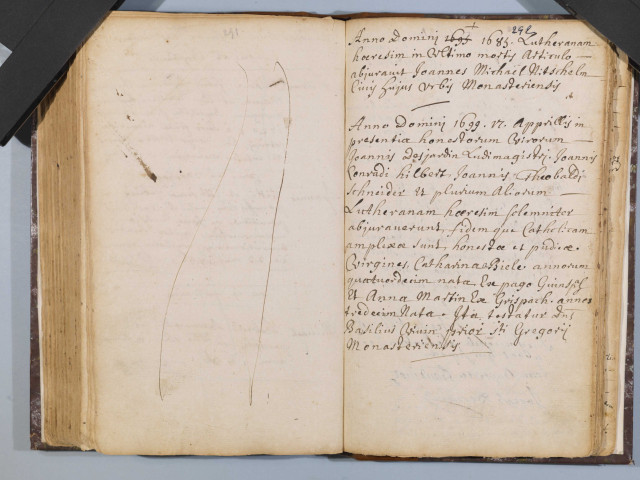 191
292
Anno Domini 1685. Lutheranam
hæresim in Ultimo mortis Articulo
abjuravit Joannes Michael Nitschelm
Civis hujus Urbis Monasteriensis
Anno Domini 1699. 17. Apprillis in
presentia honestorum Virorum
Joannis desjardin Ludimagistri, Joannis
Conradi hilbert, Joannis Theobaldi
Schneider et plurium Aliorum
Lutheranam hæresim solemniter
abjuraverunt, fidem que Catholicam
amplexæ sunt, honestæ et pudicæ
Virgines, Catharina Biele annorum
quatuordecim nata Ex pago
Et Anna Martin Ex Grispach annos
tredecim Nata. Ita testatur
Basilius Prior Sti Gregorij
Monasteriensis